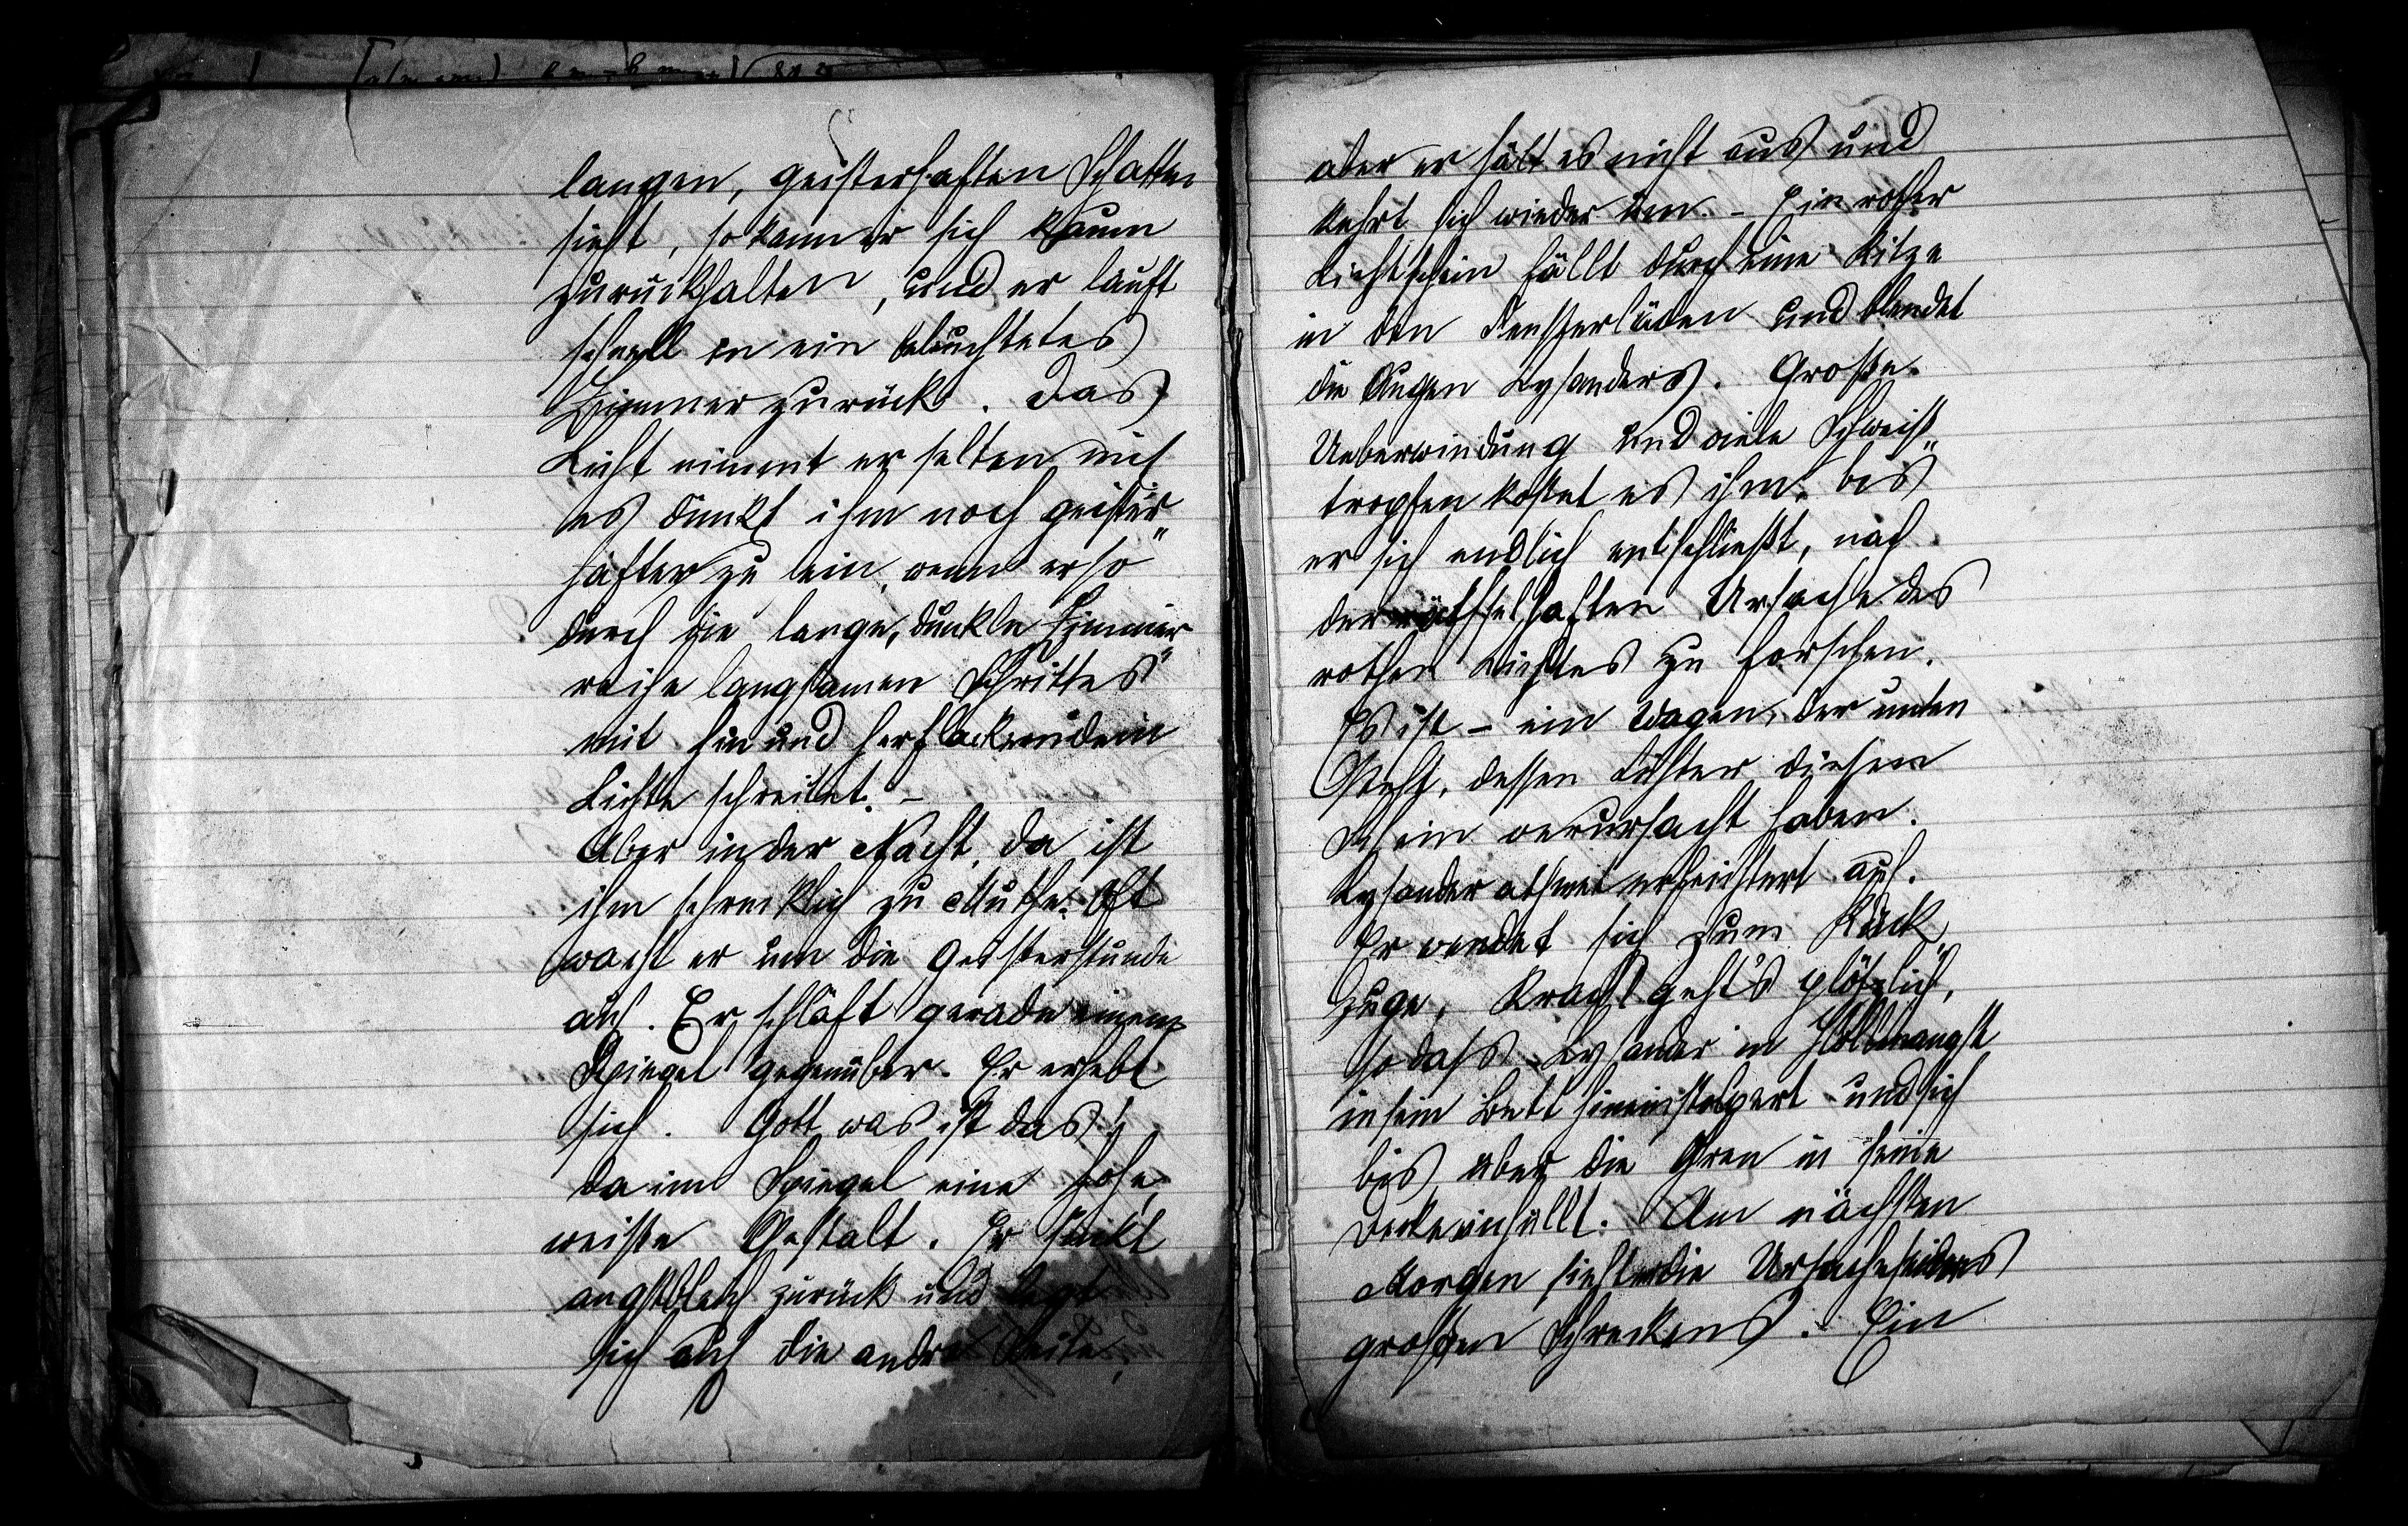 langen, geisterhaften Schatten
sieht, so kann er sich kaum
zurückhalten, und er lauft
schnell in ein beleuchtetes
Zimmer zurück. Das
Licht nimmt er selten mit
es dünkt ihm noch geister„
hafter zu sein, wenn er so
durch die lange, dunkle Zimmer„
reihe langsamen Schrittes
mit hin und herflackerndem
Lichte schreitet. –
Aber in der Nacht, da ist
ihm schrecklich zu Muthe. Oft
wacht er um die Geisterstunde
auf. Er schläft gerade einem
Spiegel gegenüber. Er erhebt
sich. Gott was ist das!
da im Spiegel eine hohe,
weiße Gestalt. Er sinkt
angstbleich zurück und legt
sich auf die andre Seite,
aber er hält es nicht aus und
kehrt sich wieder um. – Ein rother
Lichtschein fällt durch eine Ritze
in den Fensterläden und blendet
die Augen Lysanders. Große
Ueberwindung und viele Schweiß„
tropfen kostet es ihm, bis
er sich endlich entschließt, nach
der räthselhaften Ursache des
rothen Lichtes zu forschen.
Es ist – ein Wagen, der unten
steht, dessen Lichter diesen
Schein verursacht haben.
Lysander athmet erleichtert auf.
Er wendet sich zum Rück„
zuge, Krach! geht's plötzlich,
so daß Lysander in Höllenangst
in sein Bett hineinstolpert und sich
bis über die Oren in seine
Decke einhüllt. Am nächsten
Morgen sieht er die Ursache seines
großen Schreckens. Ein